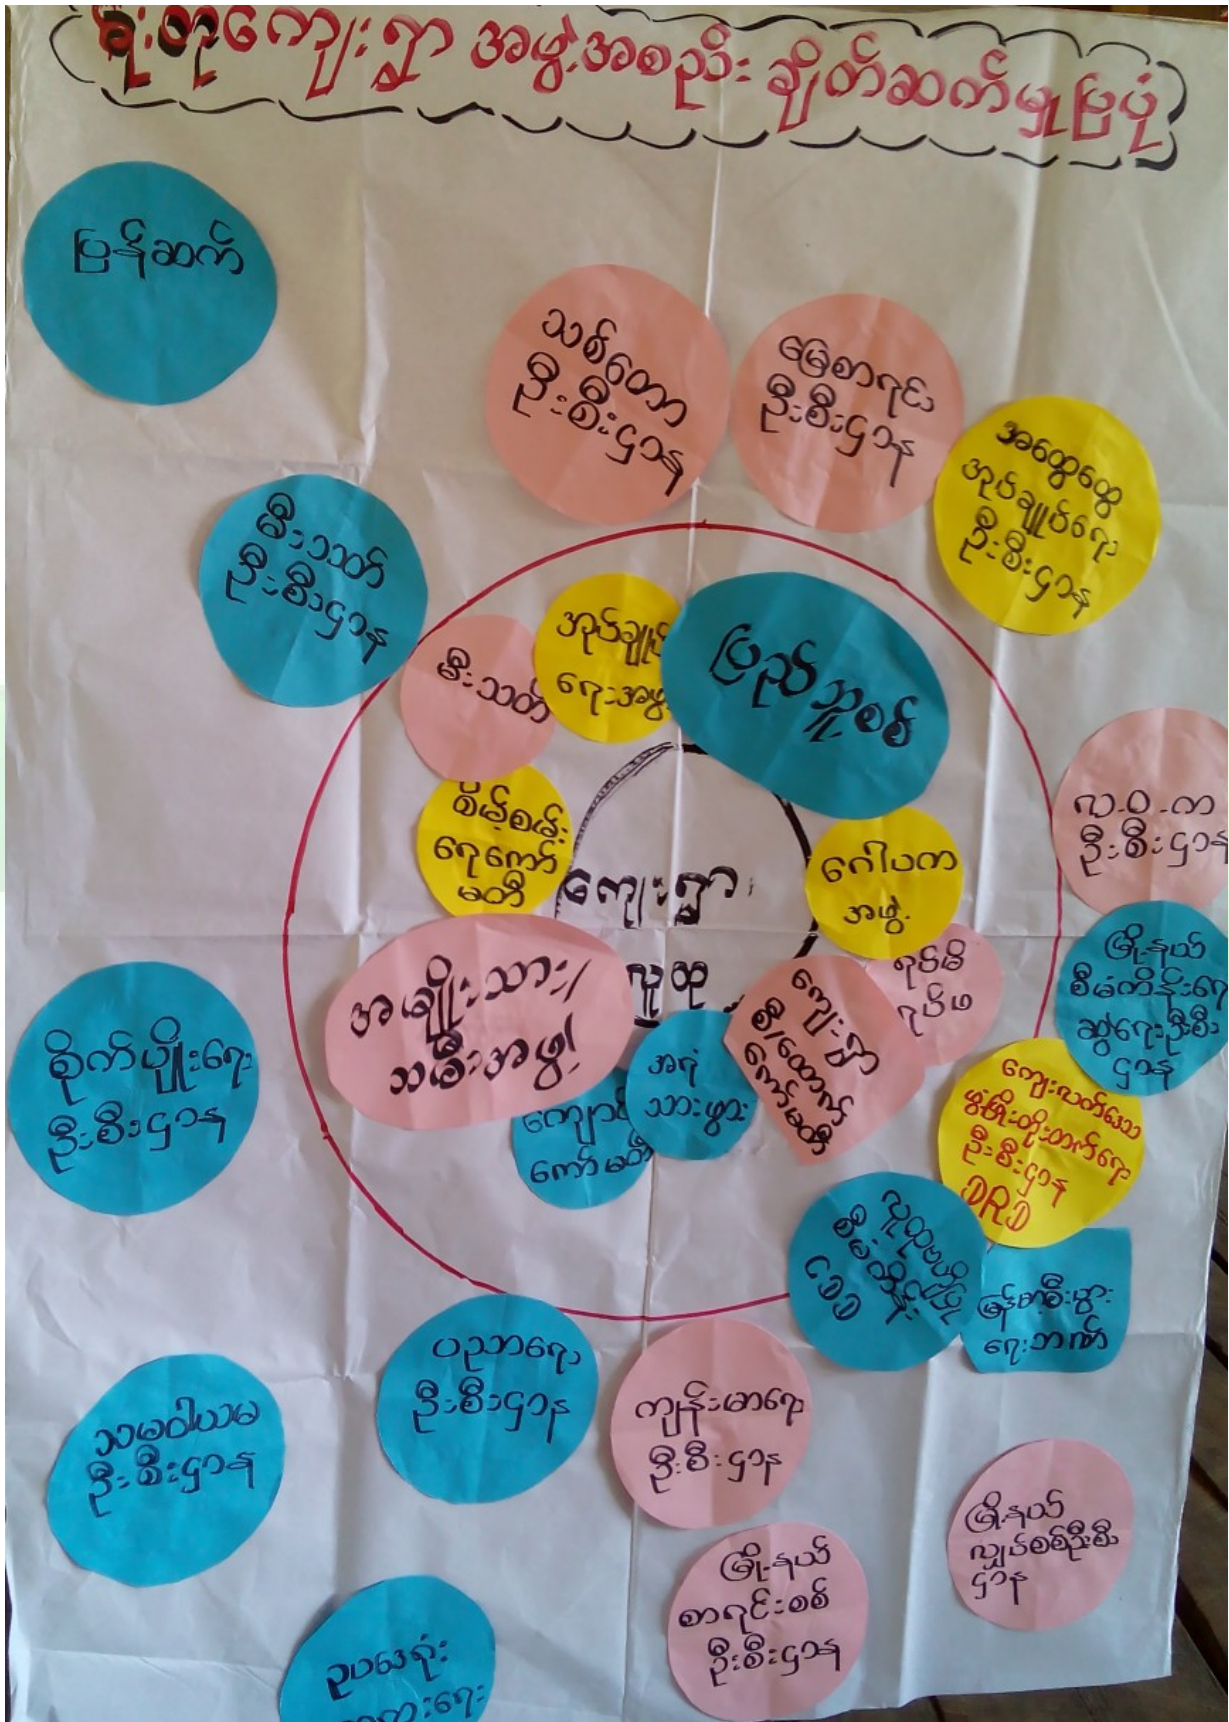 မိုးတုကျေးရွာ အဖွဲ့အစည်း ချိတ်ဆက်မှုပြပုံ
ပြန်ဆက်
သစ်တော
ဦးစီးဌာန
မြေစာရင်း
ဦးစီးဌာန
အထွေထွေ
အုပ်ချုပ်ရေး
ဦးစီးဌာန
မီးသတ်
ဦးစီးဌာန
မီးသတ်
အုပ်ချုပ်
ရေးအဖွဲ့
ပြည်သူ့စစ်
စိမ့်စမ်း
ရေကော်
မတီ
ကျေးရွာ
လူထု
ဂေါပက
အဖွဲ့
လ.ဝ.က
ဦးစီးဌာန
မြို့နယ်
စီမံကိန်းရေး
ဆွဲရေးဦးစီး
ဌာန
အမျိုးသား/
သမီးအဖွဲ့
ရပ်မိ
ရပ်ဖ
ကျေးရွာ
စီ/ထောက်
ကော်မတီ
အရံ
သားဖွား
ကျောင်း
ကော်မတီ
စိုက်ပျိုးရေး
ဦးစီးဌာန
ကျေးလက်ဒေသ
ဖွံ့ဖြိုးတိုးတက်ရေး
ဦးစီးဌာန
DRD
လူထုဗဟိုပြု
စီမံကိန်း
CDD
မြန်မာ့စီးပွား
ရေးဘဏ်
ပညာရေး
ဦးစီးဌာန
ကျန်းမာရေး
ဦးစီးဌာန
သမဝါယမ
ဦးစီးဌာန
မြို့နယ်
လျှပ်စစ်ဦးစီး
ဌာန
မြို့နယ်
စာရင်းစစ်
ဦးစီးဌာန
ဥပဒေရုံး